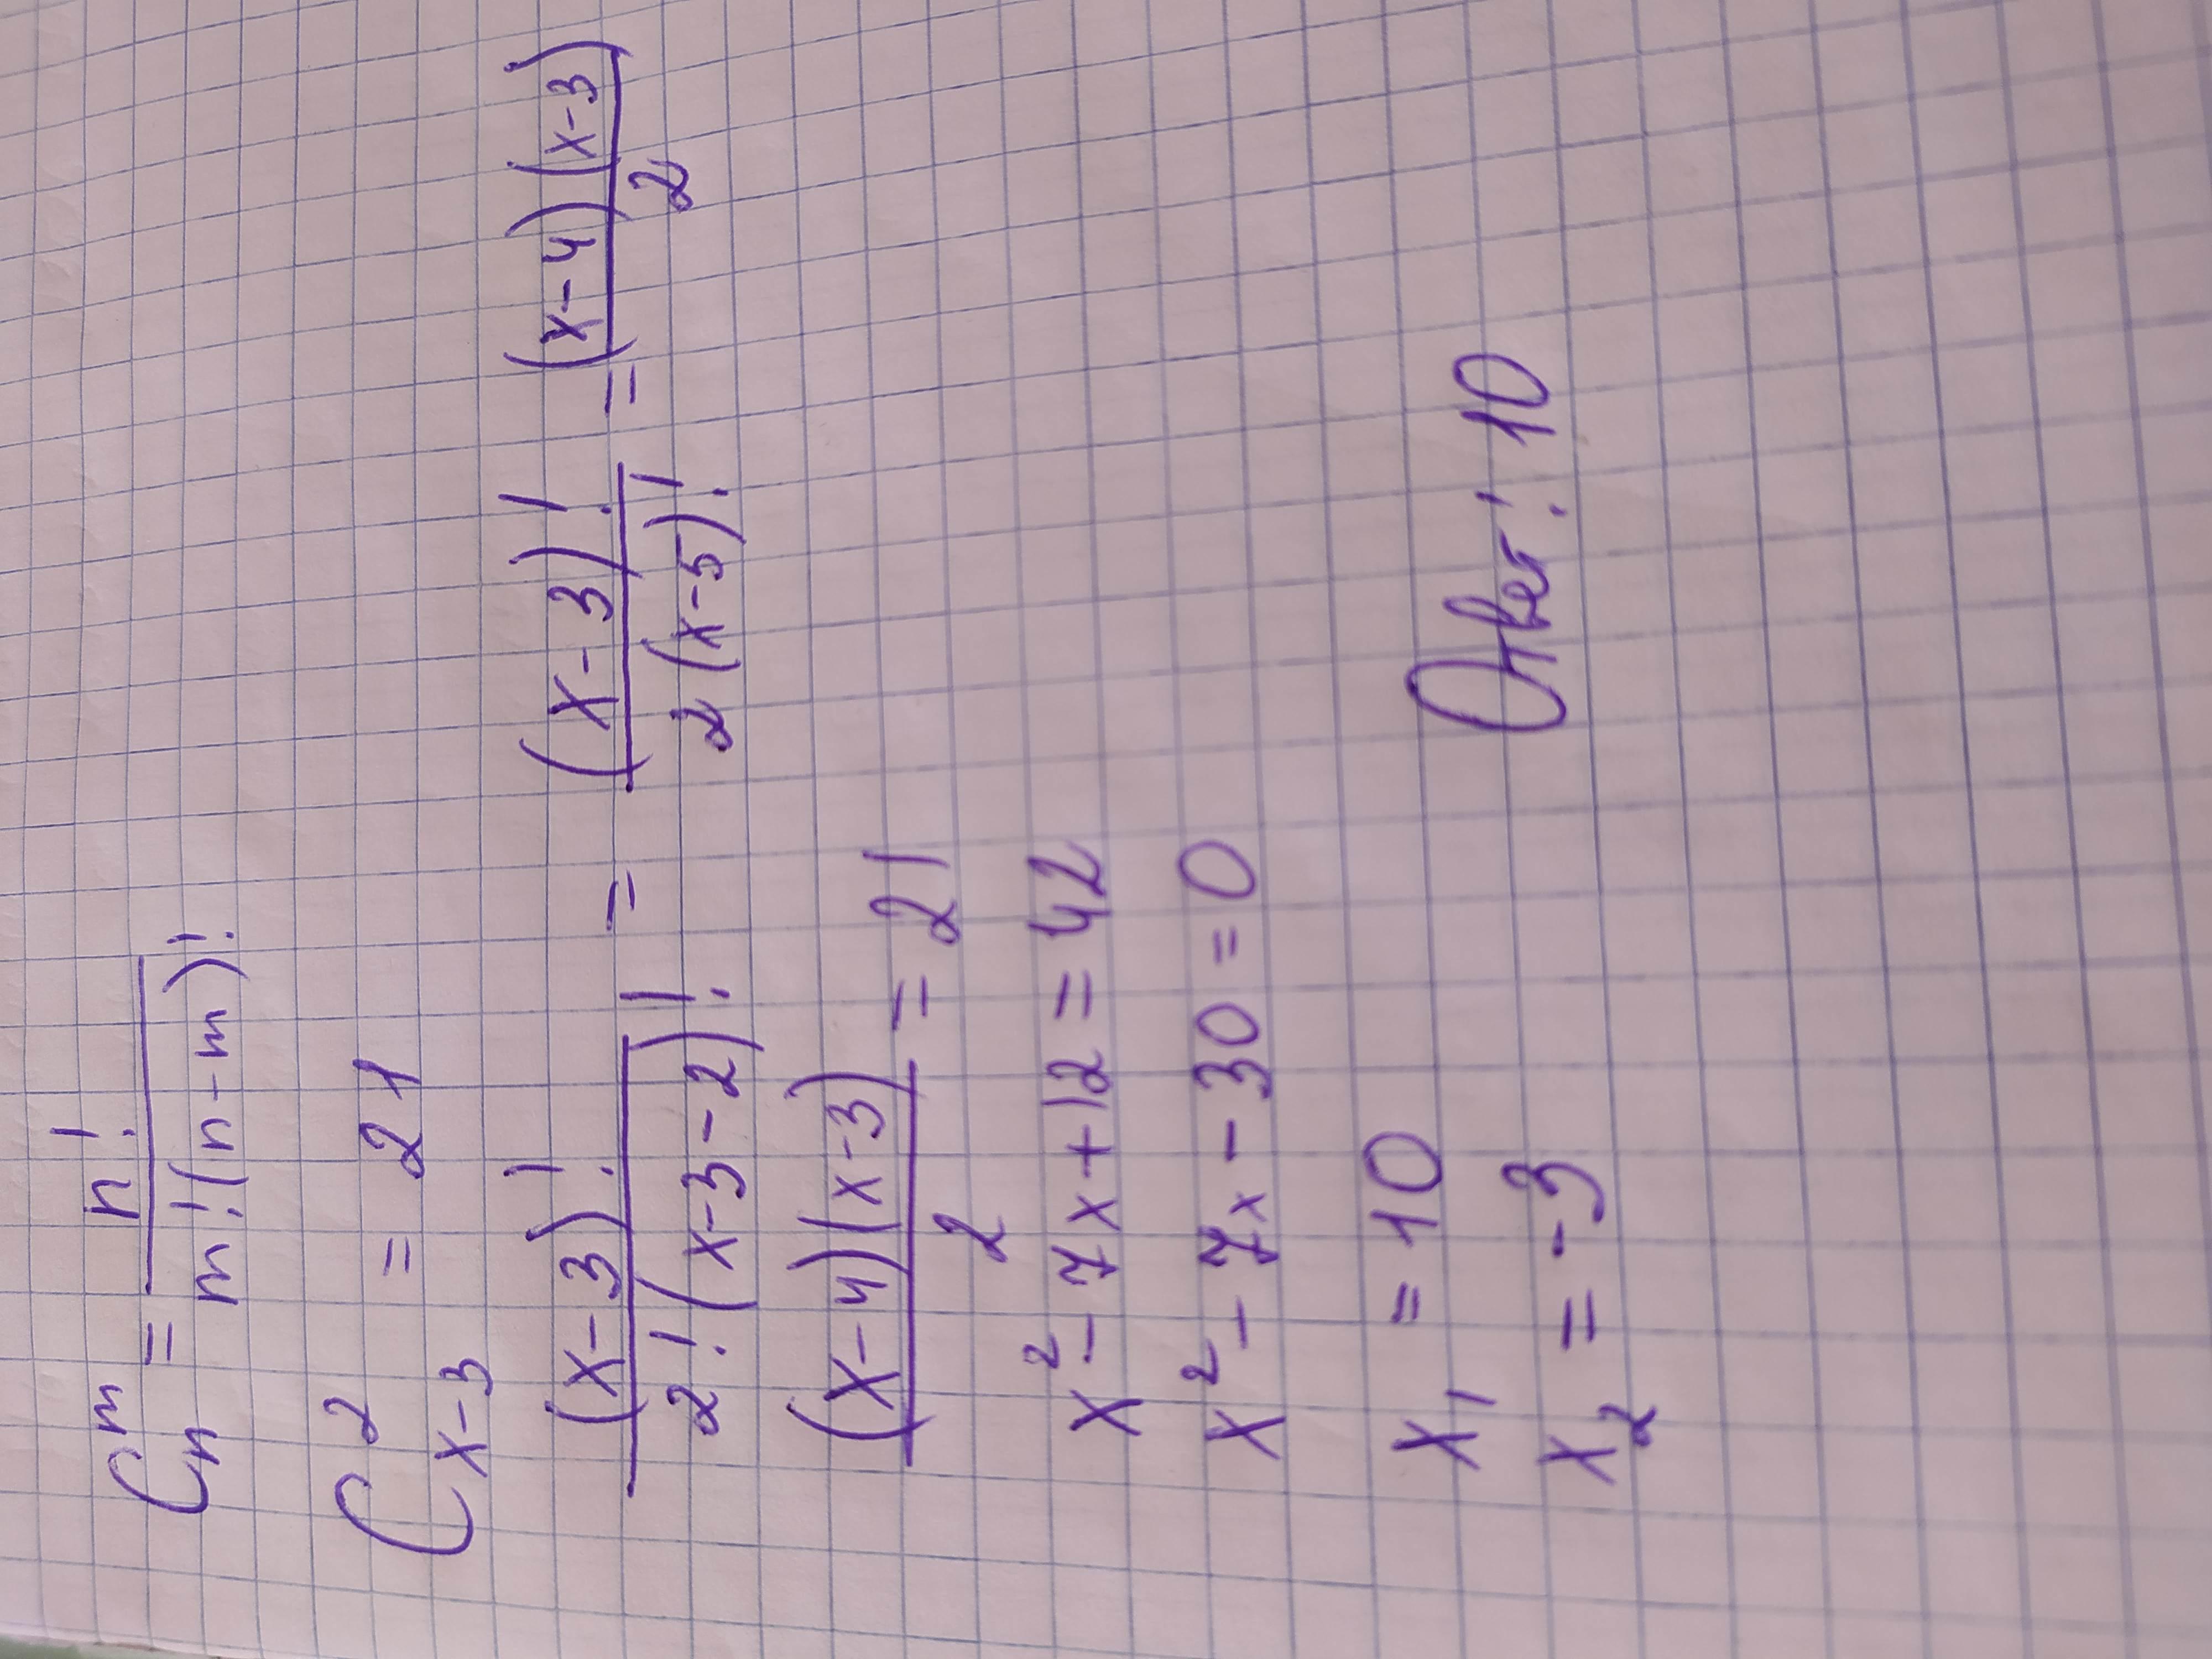 C_n^m = n! / m!(n-m)!
C_{x-3}^2 = 21
(x-3)! / 2!(x-3-2)! = (x-3)! / 2(x-5)! = (x-4)(x-3) / 2
(x-4)(x-3) / 2 = 21
x² - 7x + 12 = 42
x² - 7x - 30 = 0
x₁ = 10
x₂ = -3
Ответ: 10